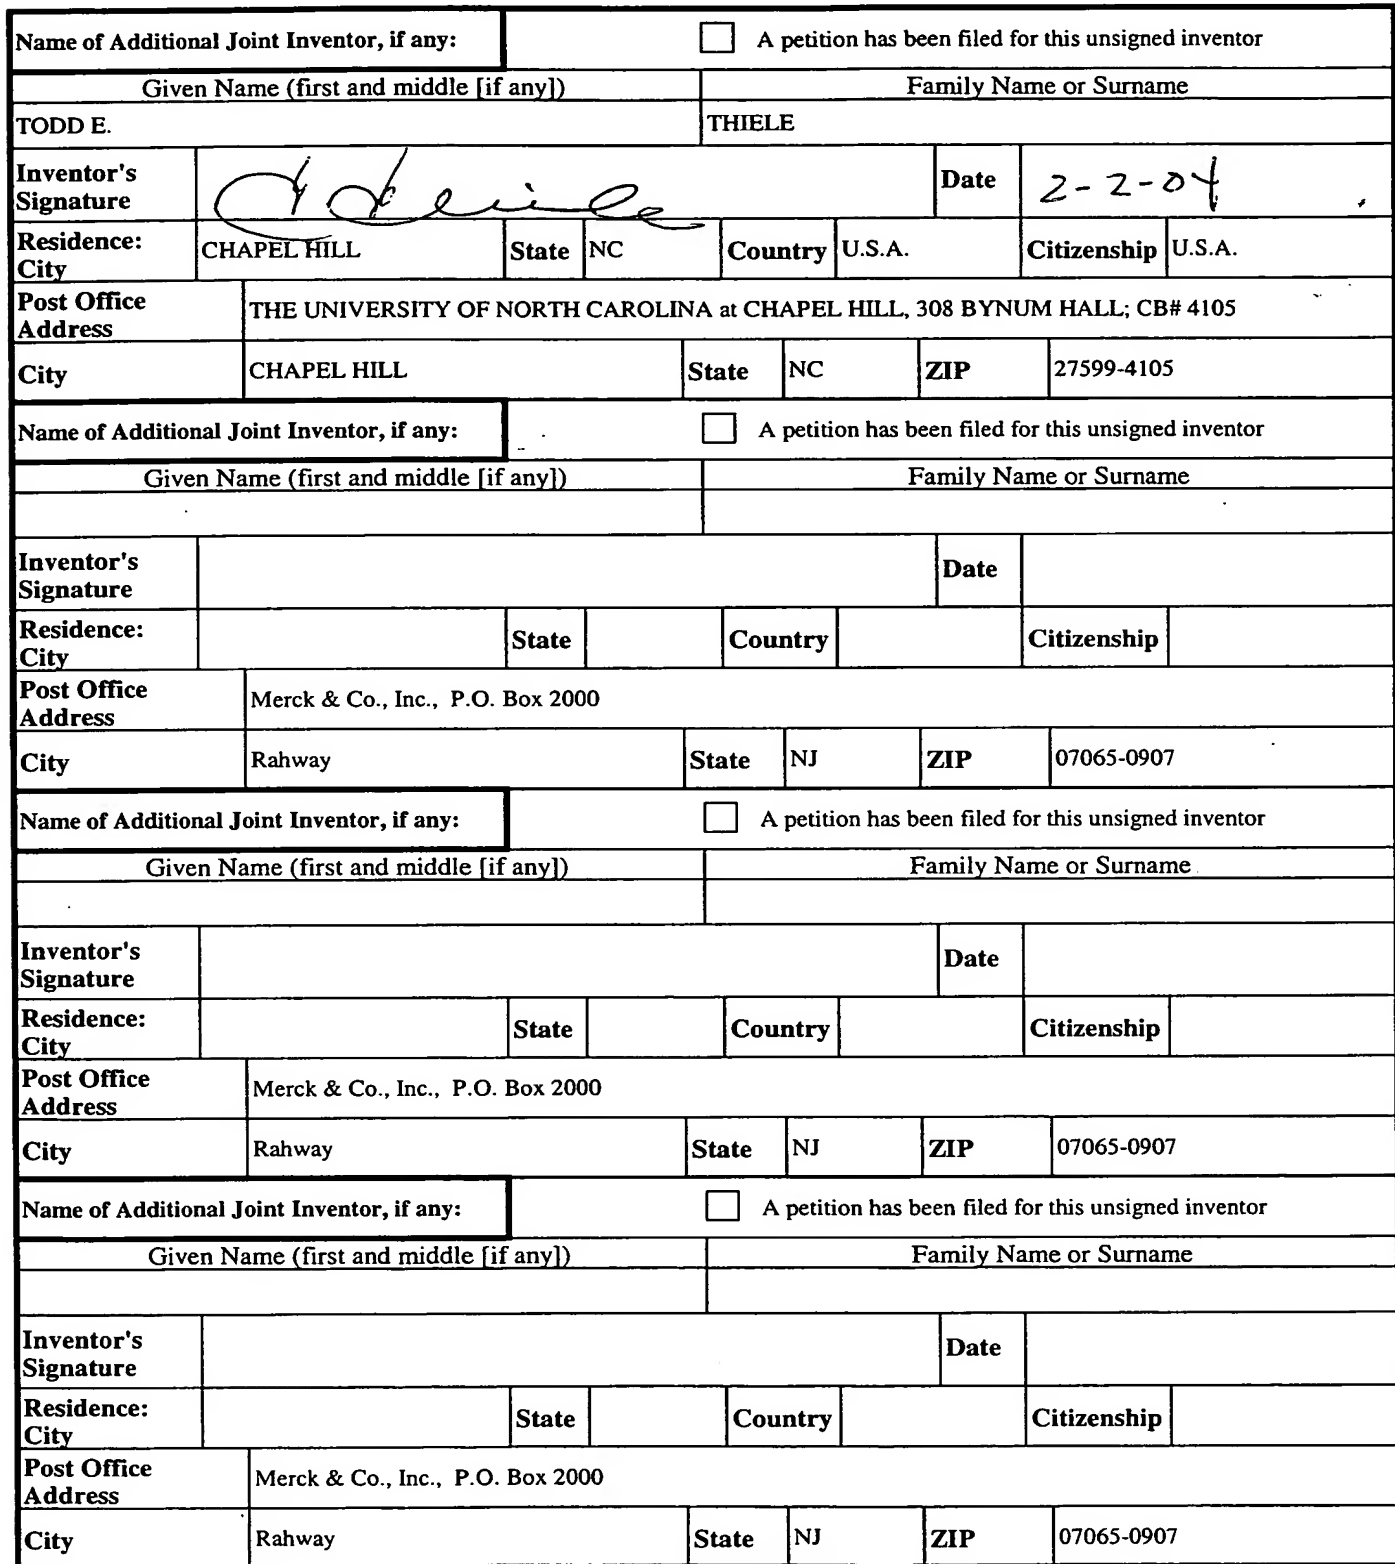 Name of Additional Joint Inventor, if any: A petition has been filed for this unsigned inventor
Given Name (first and middle [if any]) Family Name or Surname
TODD E. THIELE
Inventor's Signature Date 2-2-04
Residence: City CHAPEL HILL State NC Country U.S.A. Citizenship U.S.A.
Post Office Address THE UNIVERSITY OF NORTH CAROLINA at CHAPEL HILL, 308 BYNUM HALL; CB# 4105
City CHAPEL HILL State NC ZIP 27599-4105
Name of Additional Joint Inventor, if any: A petition has been filed for this unsigned inventor
Given Name (first and middle [if any]) Family Name or Surname
Inventor's Signature Date
Residence: City State Country Citizenship
Post Office Address Merck & Co., Inc., P.O. Box 2000
City Rahway State NJ ZIP 07065-0907
Name of Additional Joint Inventor, if any: A petition has been filed for this unsigned inventor
Given Name (first and middle [if any]) Family Name or Surname
Inventor's Signature Date
Residence: City State Country Citizenship
Post Office Address Merck & Co., Inc., P.O. Box 2000
City Rahway State NJ ZIP 07065-0907
Name of Additional Joint Inventor, if any: A petition has been filed for this unsigned inventor
Given Name (first and middle [if any]) Family Name or Surname
Inventor's Signature Date
Residence: City State Country Citizenship
Post Office Address Merck & Co., Inc., P.O. Box 2000
City Rahway State NJ ZIP 07065-0907